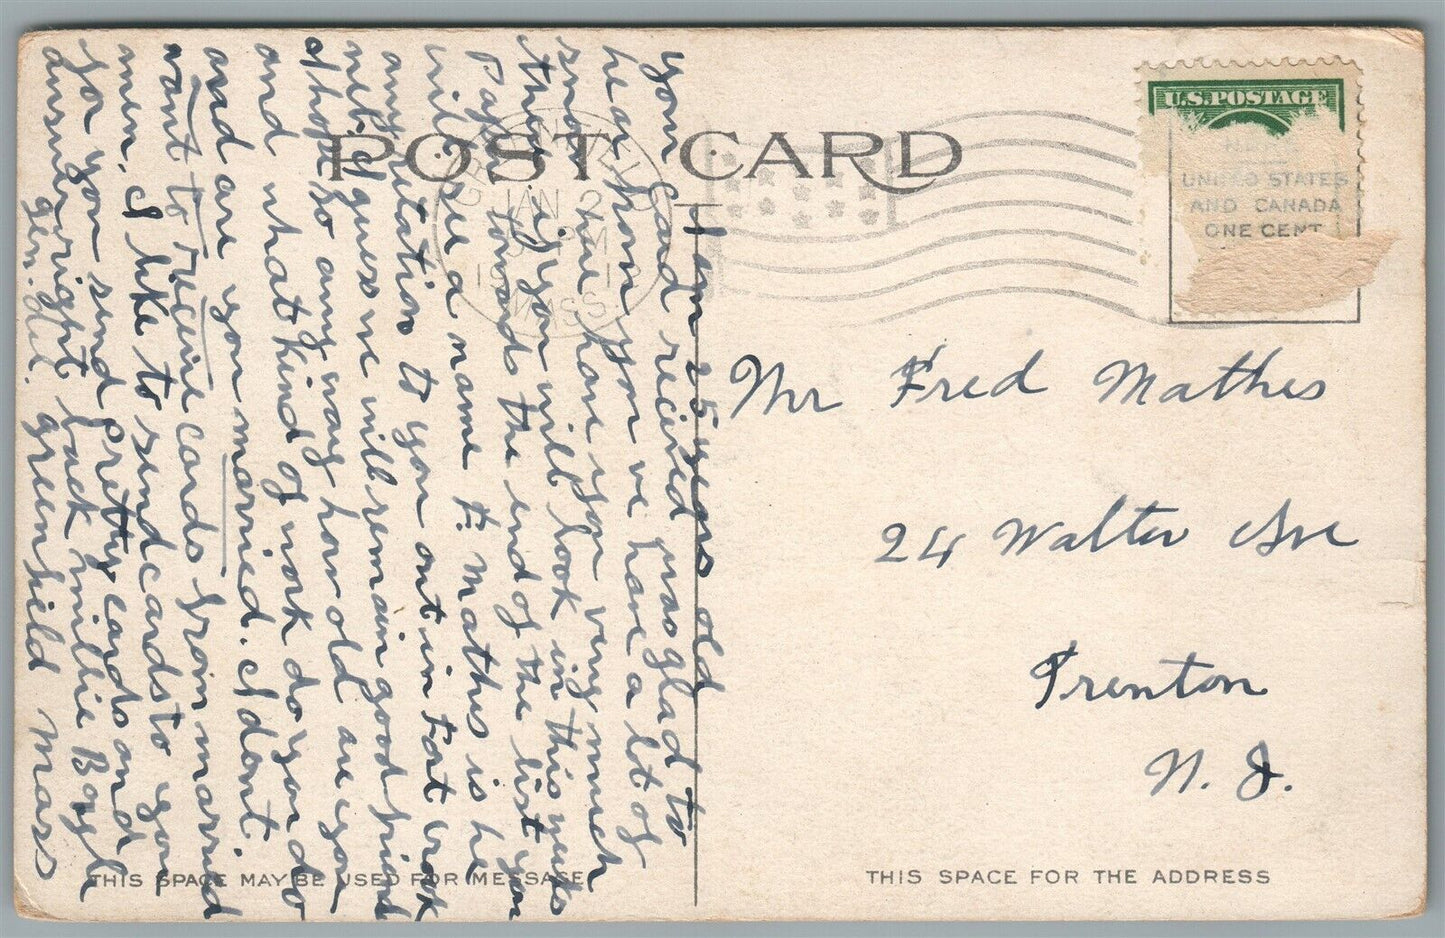 POST CARD
U.S. POSTAGE
UNITED STATES
AND CANADA
ONE CENT
GREENFIELD
JAN 2
PM
MASS.
I am 25 years old
your card received was glad to
hear from you we have a lot of
snow here have you very much
then if you will look in this weeks
Paper towards the end of the list you
will see a name F. Mathes is he
any relation to you out in Fort
I guess we will remain good friend
I hope so any way how old are you
and what kind of work do you do
and are you married. I dont
want to recieve cards from married
men. I like to send cards to you
for you send pretty cards and
answer right back Millie Boyle
Gen. Del. Greenfield Mass
Mr Fred Mathes
24 Walter Ave
Trenton
N. J.
THIS SPACE MAY BE USED FOR MESSAGE
THIS SPACE FOR THE ADDRESS